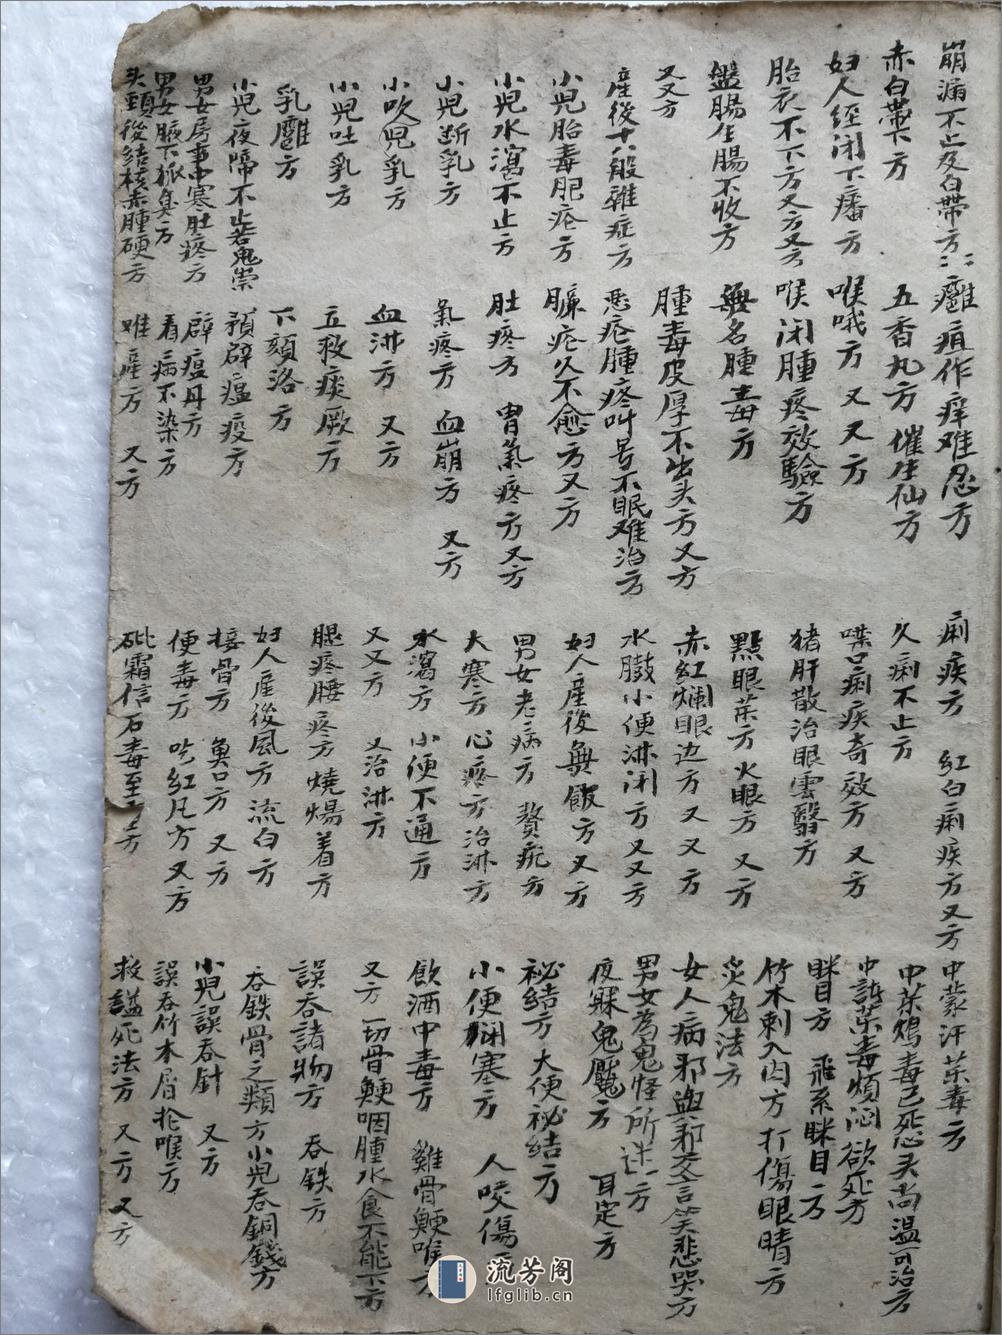 崩漏不止及白帶方
赤白帶下方
妇人经闭下癥方
胎衣不下方又方又方
盤腸生腸不收方
又又方
産後十八般雜症方
小兒胎毒肥疮方
小兒水瀉不止方
小兒断乳方
小吹兒乳方
小兒吐乳方
乳癰方
小兒夜啼不止若鬼祟
男女房事中寒肚疼方
男女腋下狐臭方
头頸後結核赤腫硬方
癰疽作痒难忍方
五香丸方 催生仙方
喉哦方 又又方
喉闭腫疼效驗方
無名腫毒方
腫毒皮厚不出头方又方
恶疮腫疼叫号不眠难治方
臁疮久不愈方又方
肚疼方 胃氣疼方又方
氣疼方 血崩方 又方
血淋方 又方
立救痰厥方
下頦洛方
預辟瘟疫方
辟瘟丹方
看病不染方
难産方 又方
痢疾方 红白痢疾方又方
久痢不止方
噤口痢疾奇效方 又方
猪肝散治眼雲翳方
點眼药方 火眼方 又方
赤紅爛眼边方 又又方
水臌小便淋闭方又又方
妇人産後無飯方又方
男女老病方 贅疣方
大寒方 心疼方治淋方
水瀉方 小便不通方
又又方 又治淋方
腿疼腰疼方 燒煬着方
妇人産後风方 流白方
接骨方 魚口方 又方
便毒方 吃红凡方又方
砒霜信石毒至
中蒙汗药毒方
中药鸩毒已死心头尚溫可治方
中諸药毒煩闷欲死方
眯目方 飛系眯目方
竹木刺入肉方 打傷眼睛方
災鬼法方
女人病邪與邪交言笑悲哭方
男女為鬼怪所迷方
夜寐鬼魘方 耳定方
祕结方 大便祕结方
小便闭塞方 人咬傷
飲酒中毒方 雞骨鯁喉方
又方 一切骨鯁咽腫水食不能下方
誤吞諸物方 吞铁方
吞鉄骨之類方小兒吞銅錢方
小兒誤吞針 又方
誤吞竹木屑抢喉方
救縊死法方 又方 又方
流芳阁
lfglib.cn